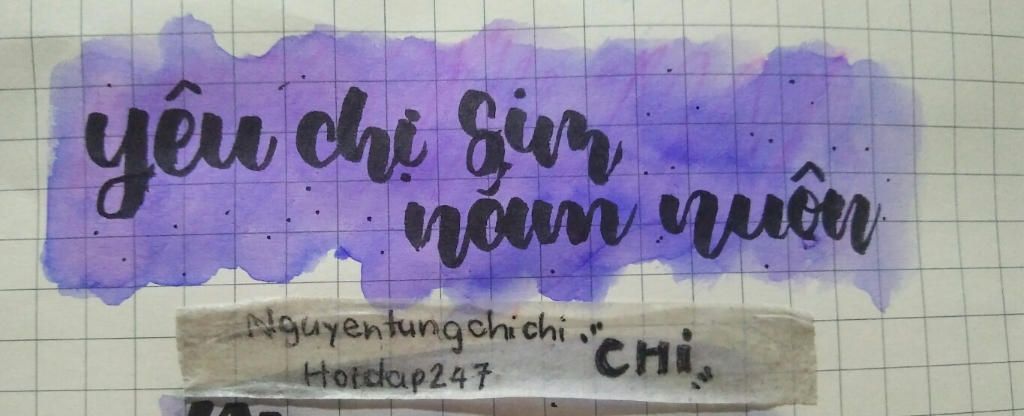 yêu chị Sim
nắm nuôn
Nguyentungchichi
Hoidap247
"CHi"